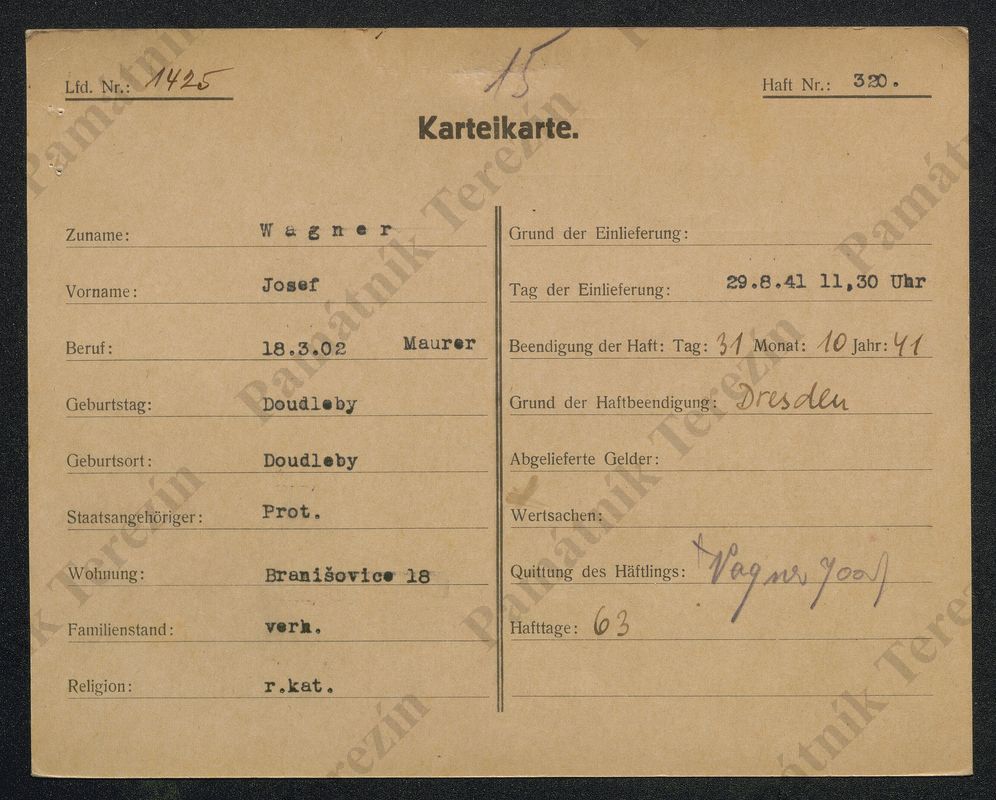 Lfd. Nr.: 1425
15
Haft Nr.: 320.
Karteikarte.
Zuname: Wagner
Vorname: Josef
Beruf: 18.3.02 Maurer
Geburtstag: Doudleby
Geburtsort: Doudleby
Staatsangehöriger: Prot.
Wohnung: Branišovice 18
Familienstand: verh.
Religion: r.kat.
Grund der Einlieferung:
Tag der Einlieferung: 29.8.41 11,30 Uhr
Beendigung der Haft: Tag: 31 Monat: 10 Jahr: 41
Grund der Haftbeendigung: Dresden
Abgelieferte Gelder:
Wertsachen:
Quittung des Häftlings: Vagner Josef
Hafttage: 63
Památník Terezín
Památník Terezín
Památník Terezín
Památník Terezín
Památník Terezín